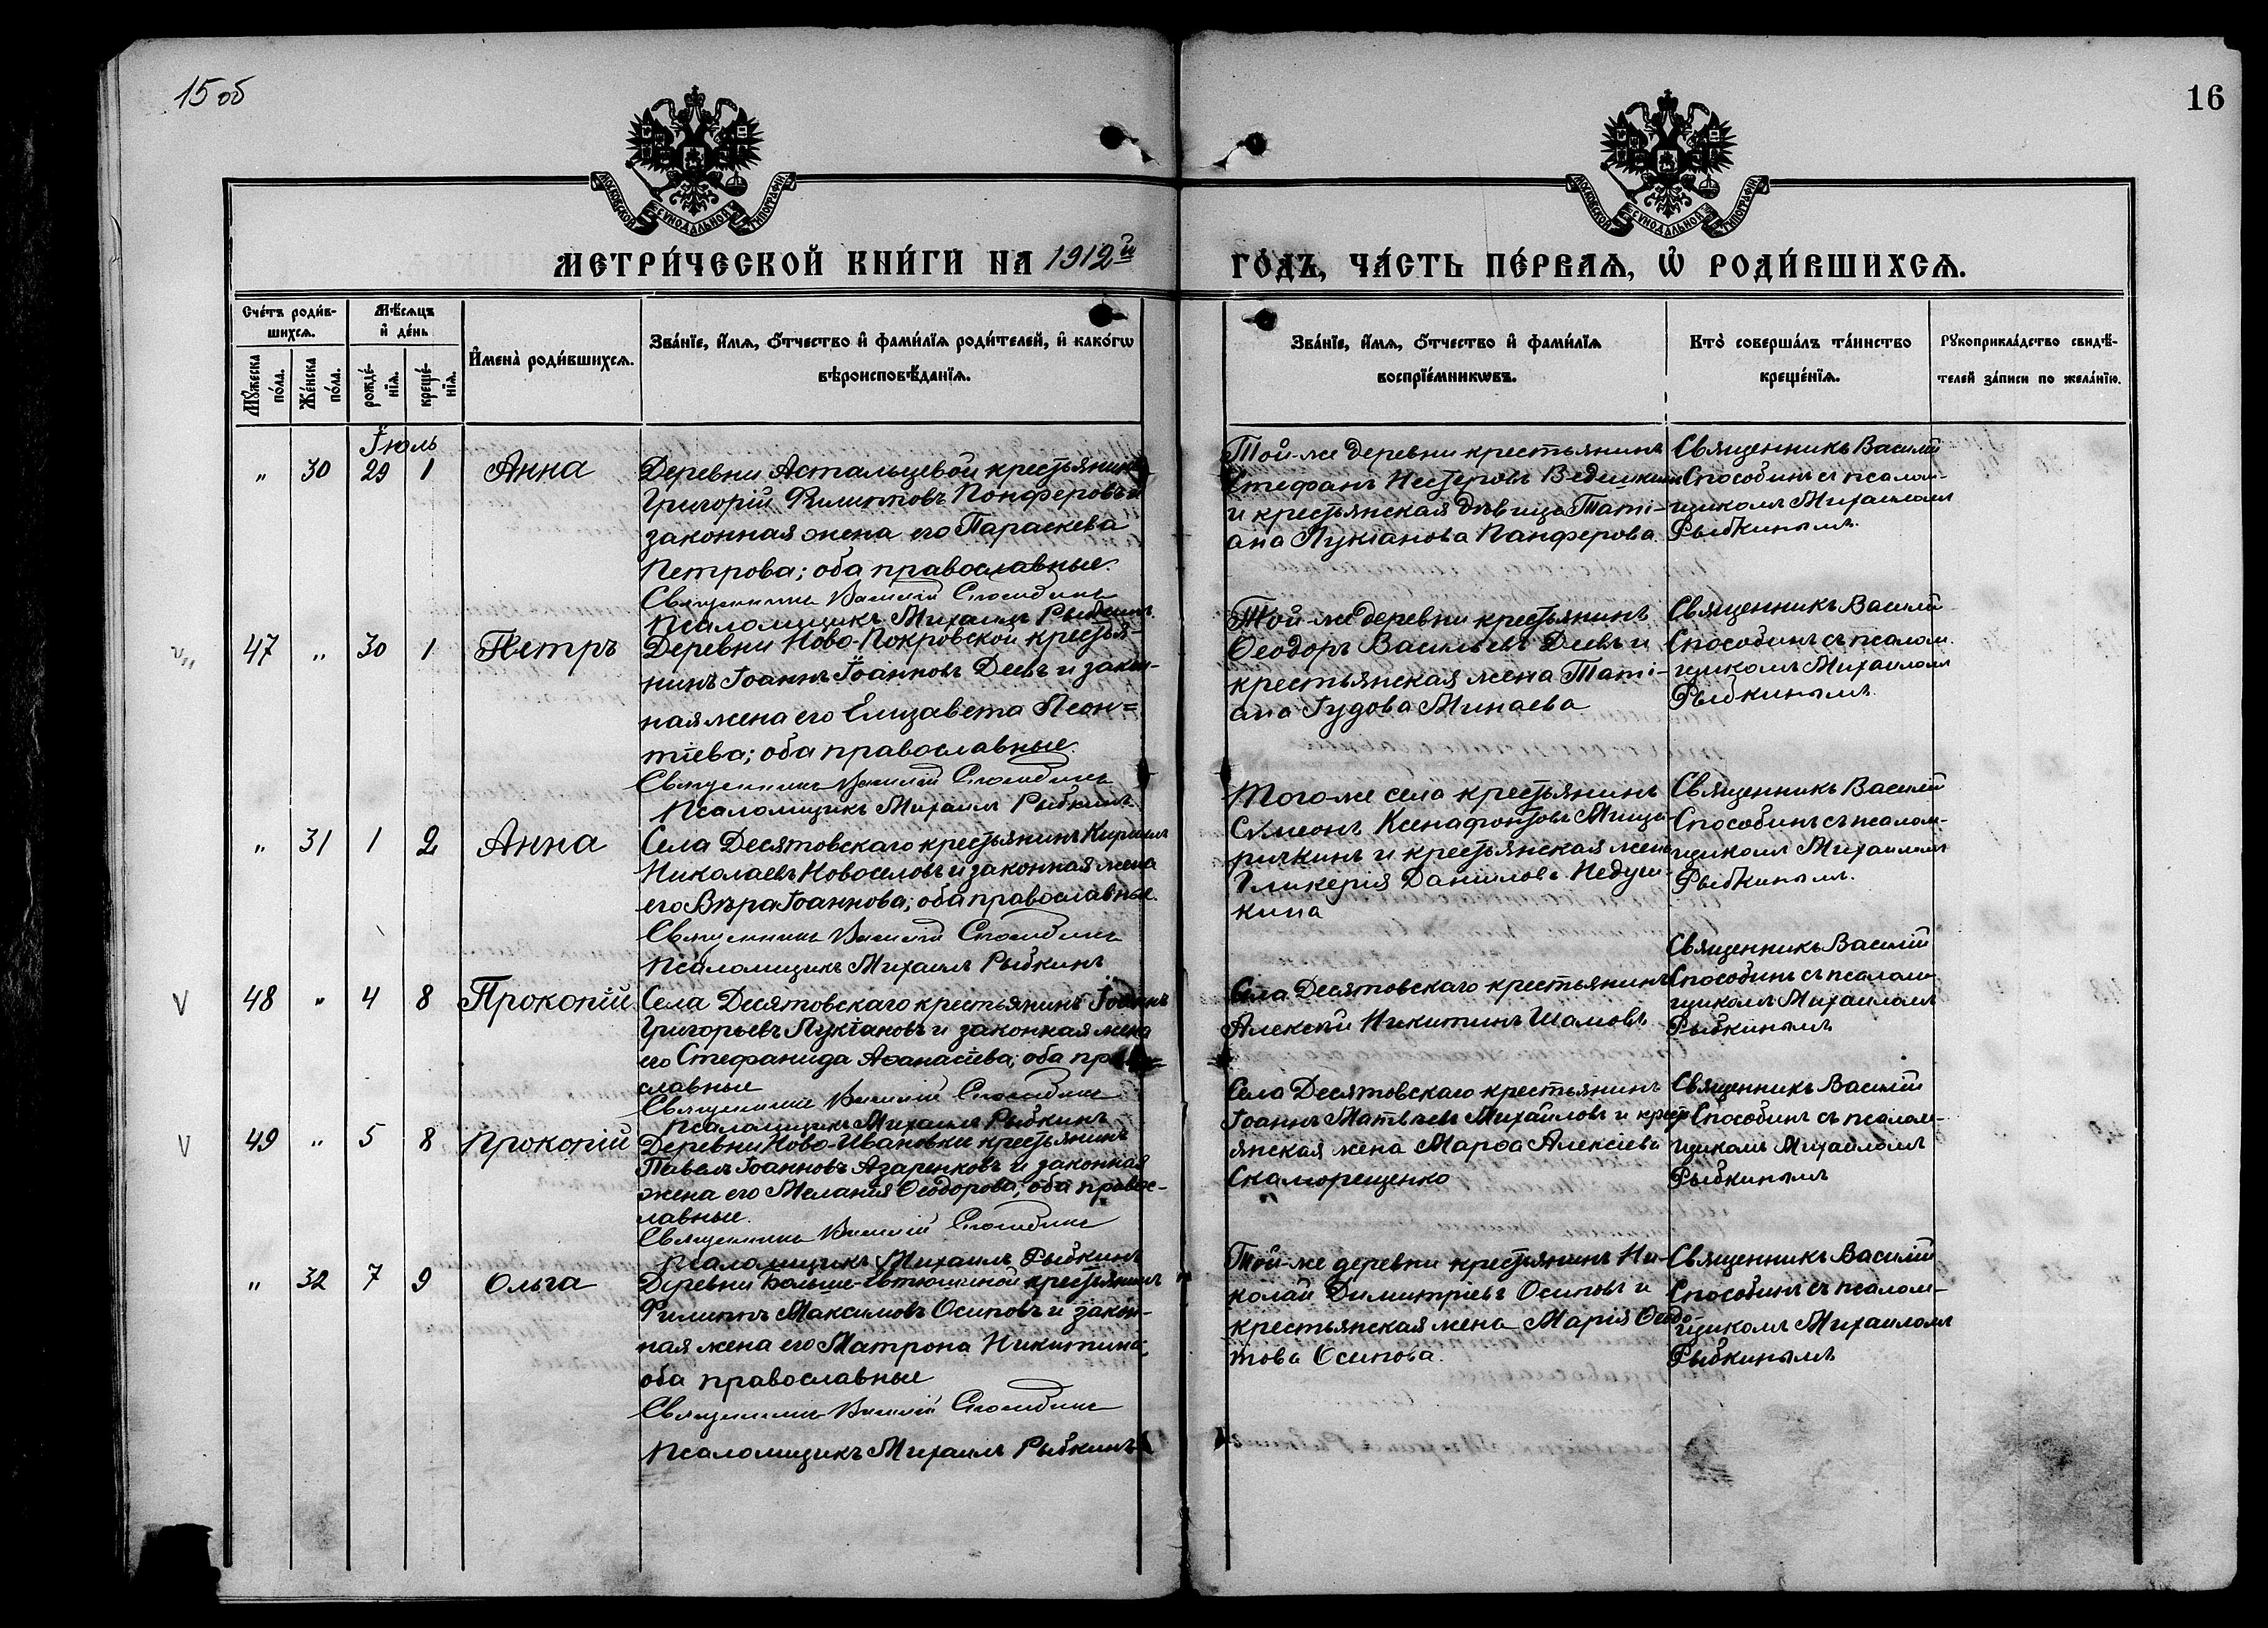 15 об
16
МОСКОВСКОЙ СѴНОДАЛЬНОЙ ТИПОГРАФІИ
МОСКОВСКОЙ СѴНОДАЛЬНОЙ ТИПОГРАФІИ
МЕТРИ́ЧЕСКОЙ КНИ́ГИ НА 1912й
ГО́ДЪ, ЧА́СТЬ ПЕ́РВАѦ, Ѡ҆ РОДИ́ВШИХСѦ.
Сче́тъ роди́в-
шихсѧ.
Мѣ́сѧцъ
и҆ де́нь
Мꙋ́жеска
по́ла.
Же́нска
по́ла.
рожде́-
нїѧ.
креще́-
нїѧ.
И҆мена̀ роди́вшихсѧ.
Зва́нїе, и҆́мѧ, ѻ҆́тчество и҆ фами́лїѧ роди́телей, и҆ како́гѡ
вѣроисповѣ́данїѧ.
Зва́нїе, и҆́мѧ, ѻ҆́тчество и҆ фами́лїѧ
воспрїе́мникѡвъ.
Кто̀ соверша́лъ та́инство
креще́нїѧ.
Рꙋкоприкла́дство свидѣ́-
телей за́писи по жела́нїю.
Іюль
„ 30 29 1 Анна
Деревни Астальцевой крестьянинъ
Григорій Филипповъ Понферовъ и
законная жена его Параскева
Петрова; оба православные.
Священникъ Василій Способинъ
Псаломщикъ Михаилъ Рыбкинъ
Той-же деревни крестьянинъ
Стефанъ Нестеровъ Ведишкинъ
и крестьянская дѣвица Таті-
ана Лукіанова Панферова.
Священникъ Василій
Способинъ съ псалом-
щикомъ Михаиломъ
Рыбкинымъ.
47 „ 30 1 Петръ
Деревни Ново-Покровской крестья-
нинъ Іоаннъ Іоанновъ Деевъ и закон-
ная жена его Елизавета Леон=
тіева; оба православные.
Священникъ Василій Способинъ
Псаломщикъ Михаилъ Рыбкинъ
Той-же деревни крестьянинъ
Ѳеодоръ Васильевъ Деевъ и
крестьянская жена Таті-
ана Гудова Минаева
Священникъ Василій
Способинъ съ псалом
щикомъ Михаиломъ
Рыбкинымъ.
„ 31 1 2 Анна
Села Десятовскаго крестьянинъ Кириллъ
Николаевъ Новоселовъ и законная жена
его Вѣра Іоаннова; оба православные.
Священникъ Василій Способинъ
Псаломщикъ Михаилъ Рыбкинъ
Того-же села крестьянинъ
Сѵмеонъ Ксенафонтовъ Мище-
ричкинъ и крестьянская жена
Гликерія Данилова Недуш-
кина
Священникъ Василій
Способинъ съ псалом-
щикомъ Михаиломъ
Рыбкинымъ.
V 48 „ 4 8 Прокопій
Села Десятовскаго крестьянинъ Іоаннъ
Григорьевъ Лукіановъ и законная жена
его Стефанида Аѳанасіева; оба право-
славные
Священникъ Василій Способинъ
Псаломщикъ Михаилъ Рыбкинъ
Села Десятовскаго крестьянинъ
Алексѣй Никитинъ Шамовъ
Священникъ Василій
Способинъ съ псалом-
щикомъ Михаиломъ
Рыбкинымъ
V 49 „ 5 8 Прокопій
Деревни Ново-Ивановки крестьянинъ
Павелъ Іоанновъ Азаренковъ и законная
жена его Меланія Ѳеодорова; оба правос-
лавные.
Священникъ Василій Способинъ
Псаломщикъ Михаилъ Рыбкинъ
Села Десятовскаго крестьянинъ
Іоаннъ Матвѣевъ Михайловъ и крест
янская жена Марѳа Алексіева
Скаморещенко
Священникъ Василій
Способинъ съ псалом-
щикомъ Михайломъ
Рыбкинымъ
„ 32 7 9 Ольга
Деревни Больше-Евтюшкиной крестьянинъ
Филиппъ Максимовъ Осиповъ и закон-
ная жена его Матрона Никитина;
оба православные
Священникъ Василій Способинъ
Псаломщикъ Михаилъ Рыбкинъ
Той-же деревни крестьянинъ Ни-
колай Димитріевъ Осиповъ и
крестьянская жена Марія Ѳеодо-
това Осипова.
Священникъ Василій
Способинъ съ псалом-
щикомъ Михаиломъ
Рыбкинымъ